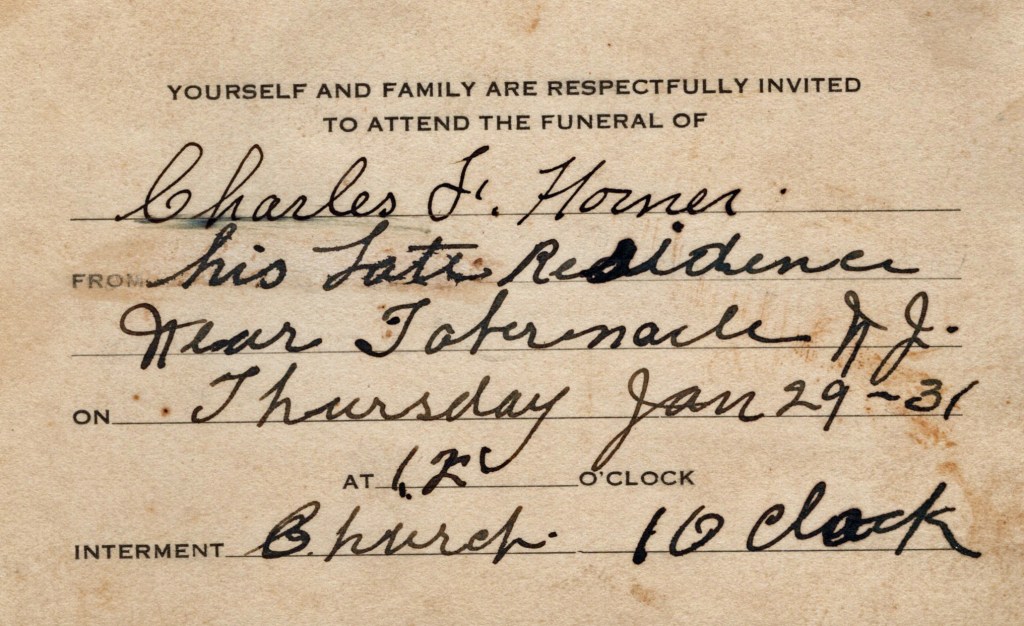 YOURSELF AND FAMILY ARE RESPECTFULLY INVITED
TO ATTEND THE FUNERAL OF
Charles F. Horner
FROM his Late Residence
Near Tabernacle N J.
ON Thursday Jan 29-31
AT 12 O'CLOCK
INTERMENT Church. 1 O Clock